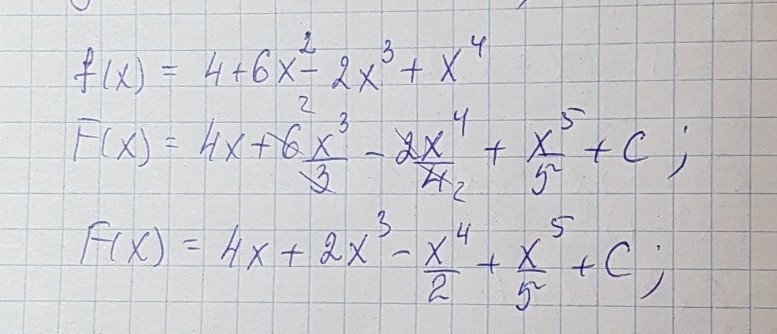 f(x) = 4 + 6x² - 2x³ + x⁴
F(x) = 4x + 6x³/3 - 2x⁴/4 + x⁵/5 + C ;
F(x) = 4x + 2x³ - x⁴/2 + x⁵/5 + C ;